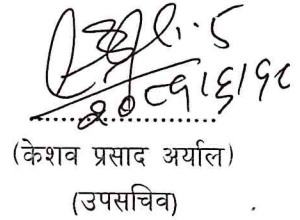 २०८१।६।१८
(केशव प्रसाद अर्याल)
(उपसचिव)